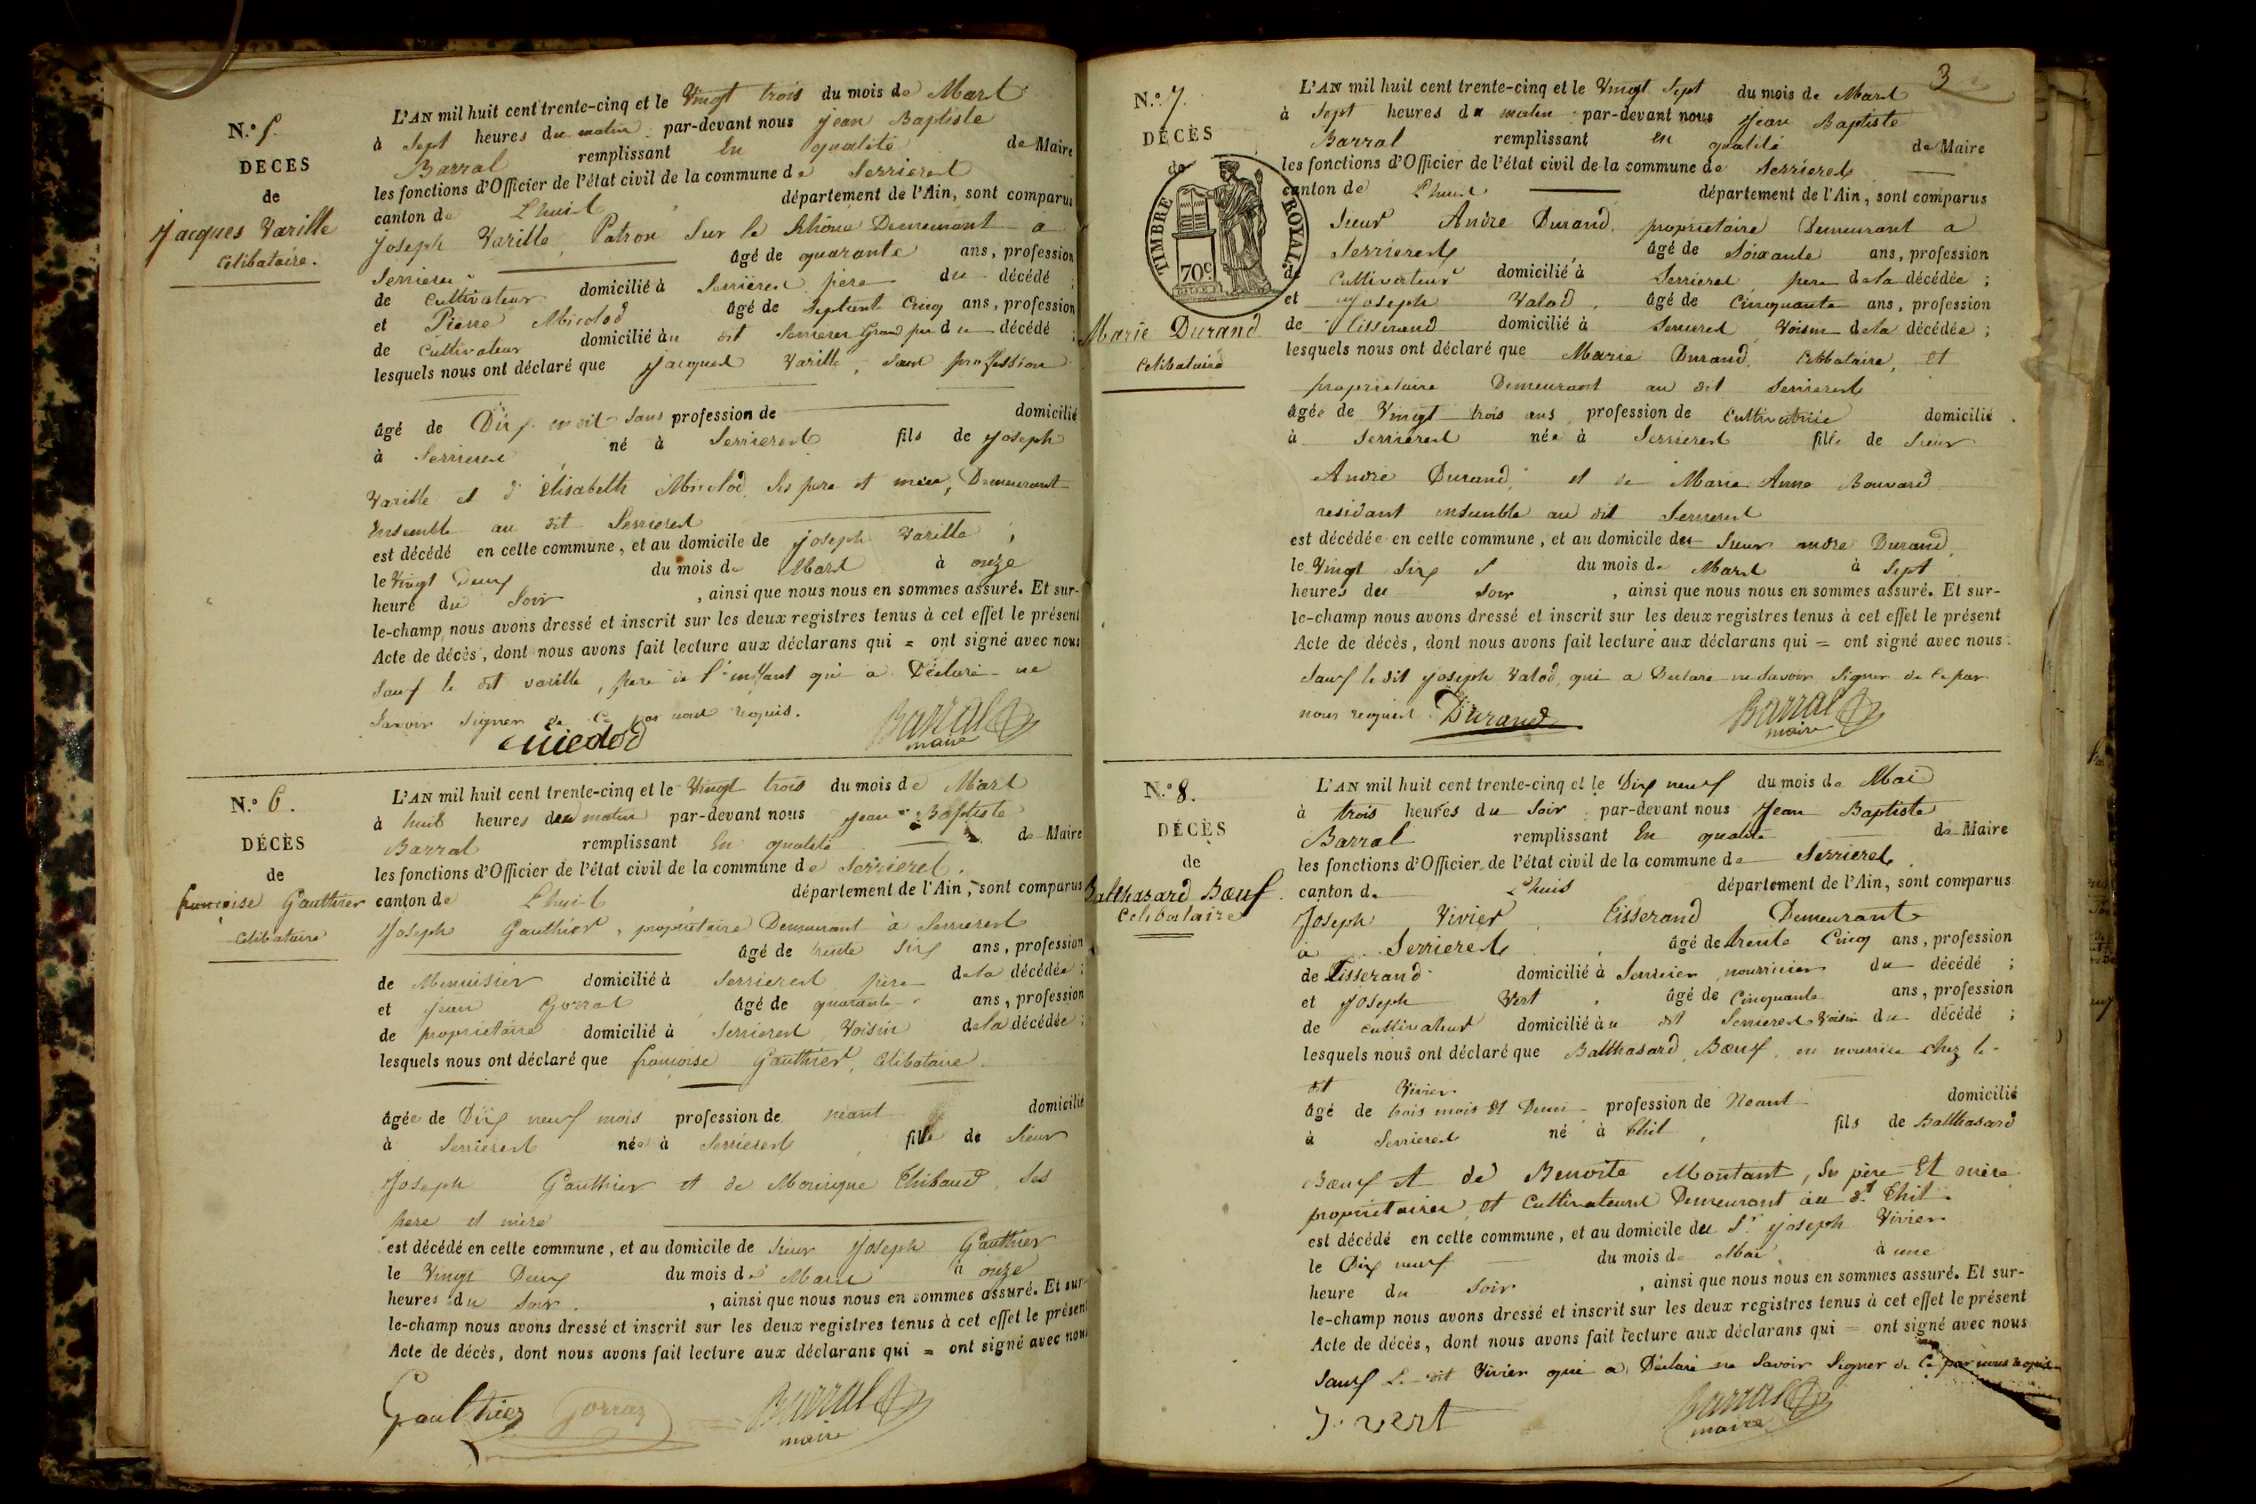 N.° 5.
DÉCÈS
de
Jacques Varille
Celibataire.
L'AN mil huit cent trente-cinq et le Vingt trois du mois de Mars
à Sept heures du matin par-devant nous Jean Baptiste
Barral remplissant En qualité de Maire
les fonctions d'Officier de l'état civil de la commune de Serrieres
canton de Lhuis département de l'Ain, sont comparus
Joseph Varille, Patron Sur le Rhône Demeurant a
Serrieres âgé de quarante ans, profession
de Cultivateur domicilié à Serrieres père du décédé ;
et Pierre âgé de Septante Cinq ans, profession
de Cultivateur domicilié au dit Serrieres Grand pere du décédé ;
lesquels nous ont déclaré que Jacques Varille, sans profession
âgé de Dix sans profession de domicilié
à Serrieres né à Serrieres fils de Joseph
Varille et d'Elisabeth ses pere et mere, Demeurant
Ensemble au dit Serrieres
est décédé en cette commune, et au domicile de Joseph Varille,
le Vingt Deux du mois de Mars à onze
heure du Soir, ainsi que nous nous en sommes assuré. Et sur-
le-champ nous avons dressé et inscrit sur les deux registres tenus à cet effet le présent
Acte de décès, dont nous avons fait lecture aux déclarans qui = ont signé avec nous
Sauf le dit varille, pere de l'enffant qui a Déclaré ne
Savoir Signer de Ce par nous requis.
Barral
maire
N.° 6.
DÉCÈS
de
françoise Gauthier
Celibataire
L'AN mil huit cent trente-cinq et le Vingt trois du mois de Mars
à huit heures du matin par-devant nous Jean Baptiste
Barral remplissant En qualité de Maire
les fonctions d'Officier de l'état civil de la commune de Serrieres.
canton de Lhuis, département de l'Ain, sont comparus
Joseph Gauthier, propriétaire Demeurant à Serrieres
âgé de trente Six ans, profession
de Menuisier domicilié à Serrieres père de la décédée ;
et jean Gorrat, âgé de quarante ans, profession
de propriétaire domicilié à Serrieres Voisin de la décédée ;
lesquels nous ont déclaré que françoise Gauthier, Celibataire.
âgée de Dix neuf mois profession de néant domicilié
à Serrieres née à Serrieres, fille de Sieur
Joseph Gauthier et de Monique Thibaud, ses
pere et mère
est décédé en cette commune, et au domicile de Sieur Joseph Gauthier
le Vingt Deux du mois de Mars à onze
heures du Soir., ainsi que nous nous en sommes assuré. Et sur-
le-champ nous avons dressé et inscrit sur les deux registres tenus à cet effet le présent
Acte de décès, dont nous avons fait lecture aux déclarans qui = ont signé avec nous
Gauthier Gorraz Barral
maire
3
N.° 7.
DÉCÈS
de
TIMBRE ROYAL
70c
Marie Durand
Celibataire
L'AN mil huit cent trente-cinq et le Vingt Sept du mois de Mars
à Sept heures du matin par-devant nous Jean Baptiste
Barral remplissant en qualité de Maire
les fonctions d'Officier de l'état civil de la commune de Serrieres
canton de Lhuis département de l'Ain, sont comparus
Sieur André Durand, propriétaire Demeurant a
Serrieres, âgé de Soixante ans, profession
de Cultivateur domicilié à Serrieres, pere de la décédée ;
et Joseph Valod, âgé de Cinquante ans, profession
de tisserand domicilié à Serrieres, Voisin de la décédée ;
lesquels nous ont déclaré que Marie Durand, Celibataire, et
propriétaire Demeurant au dit Serrieres
âgée de Vingt trois ans, profession de Cultivatrice domicilié
à Serrieres née à Serrieres fille de Sieur
André Durand, et de Marie Anne Bouvard
residant ensemble au dit Serrieres
est décédée en cette commune, et au domicile du Sieur andré Durand,
le Vingt Six du mois de Mars à Sept
heures du Soir, ainsi que nous nous en sommes assuré. Et sur-
le-champ nous avons dressé et inscrit sur les deux registres tenus à cet effet le présent
Acte de décès, dont nous avons fait lecture aux déclarans qui = ont signé avec nous.
Sauf le dit Joseph Valod, qui a Declaré ne Savoir Signer de Ce par
nous requis. Durand Barral
maire
N.° 8.
DÉCÈS
de
Balthasard Bœuf.
Celibataire
L'AN mil huit cent trente-cinq et le Dix neuf du mois de Mai
à trois heures du Soir par-devant nous Jean Baptiste
Barral remplissant En qualité de Maire
les fonctions d'Officier de l'état civil de la commune de Serrieres.
canton de Lhuis département de l'Ain, sont comparus
Joseph Vivier, tisserand Demeurant
à Serrieres, âgé de trente Cinq ans, profession
de Tisserand domicilié à Serrieres nourricier du décédé ;
et Joseph Vert, âgé de Cinquante ans, profession
de cultivateur domicilié au dit Serrieres Voisin du décédé ;
lesquels nous ont déclaré que Balthasard Bœuf, en nourrice chez le
dit Vivier
âgé de trois mois et Demi profession de Néant domicilié
à Serrieres né à thil, fils de Balthasard
Bœuf et de Benoite Montant, Ses père Et mère
propriétaires et Cultivateurs Demeurant au dt Thil.
est décédé en cette commune, et au domicile du Sr. Joseph Vivier
le Dix neuf du mois de Mai à une
heure du Soir, ainsi que nous nous en sommes assuré. Et sur-
le-champ nous avons dressé et inscrit sur les deux registres tenus à cet effet le présent
Acte de décès, dont nous avons fait lecture aux déclarans qui = ont signé avec nous
Sauf Le dit Vivier qui a Déclaré ne Savoir Signer de Ce par nous requis
J. vert Barral
maire